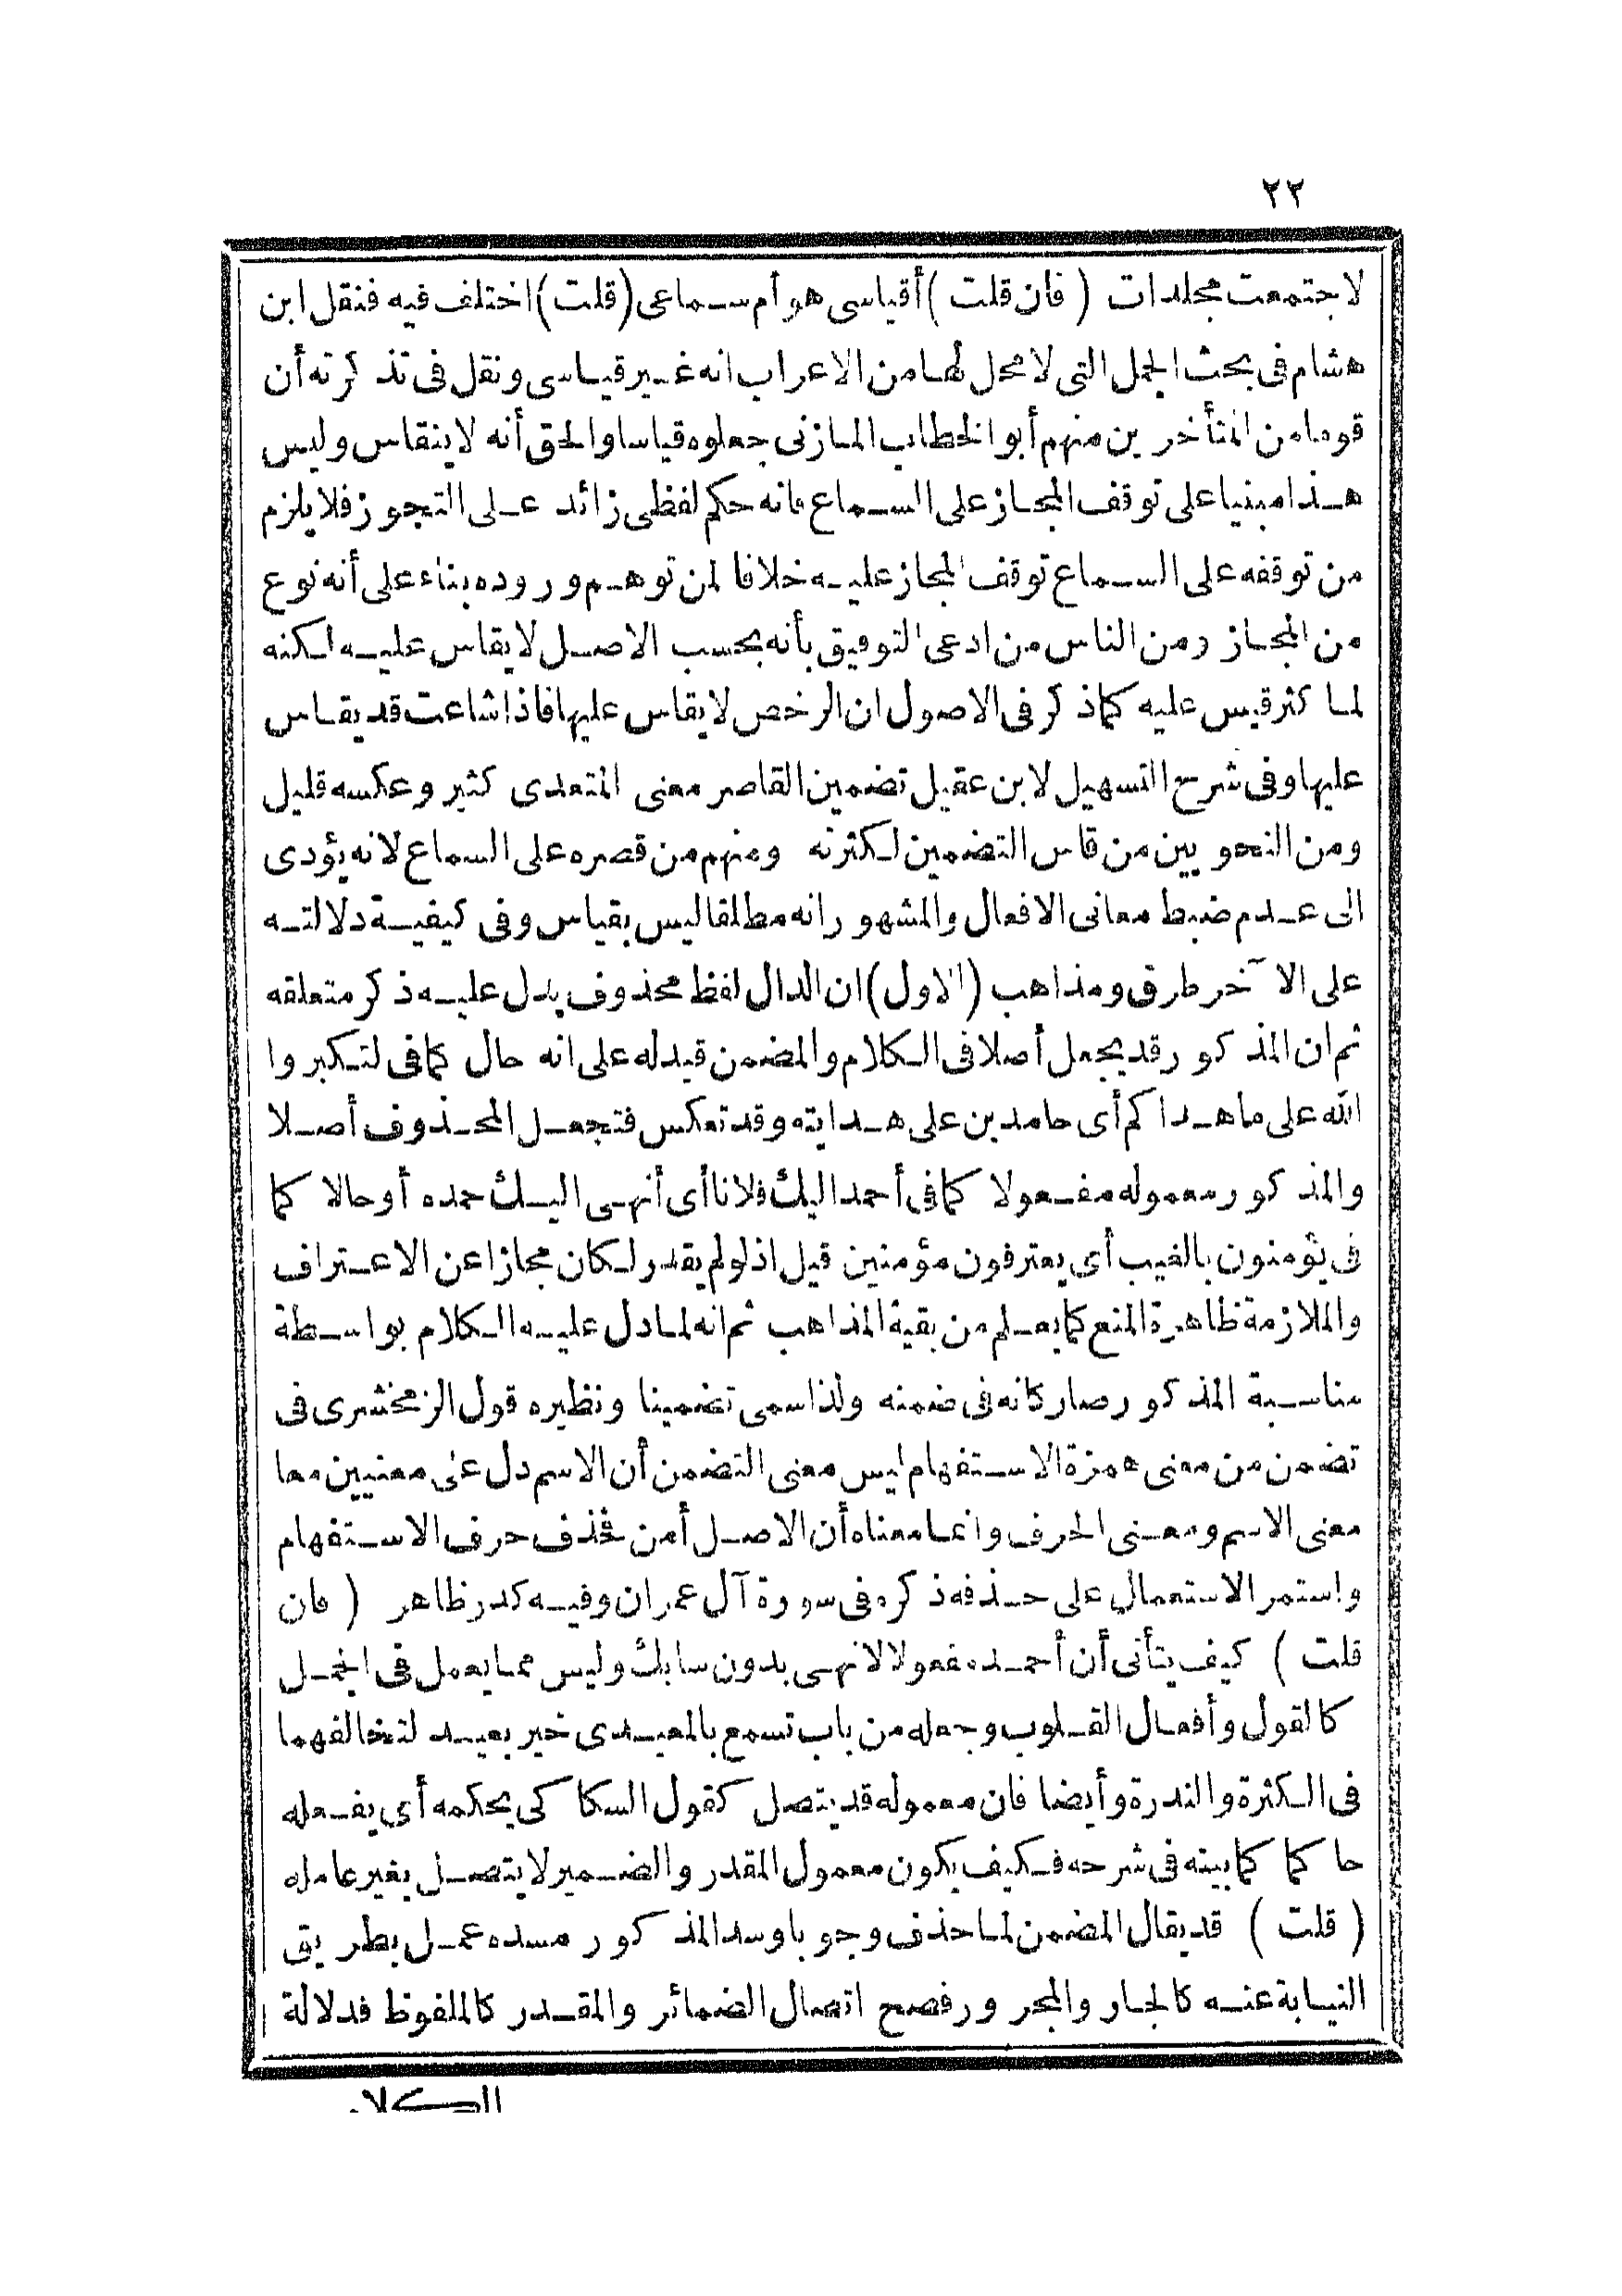 ٢٢
لاجتمعت مجلدات (فان قلت) أقياسى هو أم سماعى (قلت) اختلف فيه فنقل ابن
هشام فى بحث الجمل التى لا محل لها من الاعراب انه غير قياسى ونقل فى تذكرته أن
قوما من المتأخرين منهم أبو الخطاب المازنى جعلوه قياسا والحق أنه لا ينقاس وليس
هذا مبنيا على توقف المجاز على السماع فانه حكم لفظى زائد على التجوز فلا يلزم
من توقفه على السماع توقف المجاز عليه خلافا لمن توهم وروده بناء على أنه نوع
من المجاز ومن الناس من ادعى التوفيق بأنه بحسب الاصل لا يقاس عليه لكنه
لما كثر قيس عليه كما ذكر فى الاصول ان الرخص لا يقاس عليها فاذا شاعت قد يقاس
عليها وفى شرح التسهيل لابن عقيل تضمين القاصر معنى المتعدى كثير وعكسه قليل
ومن النحويين من قاس التضمين لكثرته ومنهم من قصره على السماع لانه يؤدى
الى عدم ضبط معانى الافعال والمشهور انه مطلقا ليس بقياس وفى كيفية دلالته
على الآخر طرق ومذاهب (الاول) ان الدال لفظ محذوف يدل عليه ذكر متعلقه
ثم ان المذكور قد يجعل أصلا فى الكلام والمضمن قيد له على انه حال كما فى لتكبروا
الله على ما هداكم أى حامدين على هدايته وقد تعكس فتجعل المحذوف أصلا
والمذكور معموله مفعولا كما فى أحمد اليك فلانا أى أنهى اليك حمده أو حالا كما
فى يؤمنون بالغيب أى يعترفون مؤمنين قيل اذ لو لم يقدر لكان مجازا عن الاعتراف
والملازمة ظاهرة المنع كما يعلم من بقية المذاهب ثم انه لما دل عليه الكلام بواسطة
مناسبة المذكور صار كانه فى ضمنه ولذا سمى تضمينا ونظيره قول الزمخشرى فى
تضمن من معنى همزة الاستفهام ليس معنى التضمن أن الاسم دل على معنيين معا
معنى الاسم ومعنى الحرف وانما معناه أن الاصل أمن فحذف حرف الاستفهام
واستمر الاستعمال على حذفه ذكره فى سورة آل عمران وفيه كدر ظاهر (فان
قلت) كيف يتأتى أن أحمد مفعولا لانهى بدون سابك وليس مما يعمل فى الجمل
كالقول وأفعال القلوب وجعله من باب تسمع بالمعيدى خير بعيد لتخالفهما
فى الكثرة والندرة وأيضا فان معموله قد يتصل كقول السكاكى يحكمه أى يفعله
حاكما كما بينته فى شرحه فكيف يكون معمول المقدر والضمير لا يتصل بغير عامله
(قلت) قد يقال المضمن لما حذف وجوبا وسد المذكور مسده عمل بطريق
النيابة عنه كالجار والمجرور فصح اتصال الضمائر والمقدر كالملفوظ فدلالة
الكلام